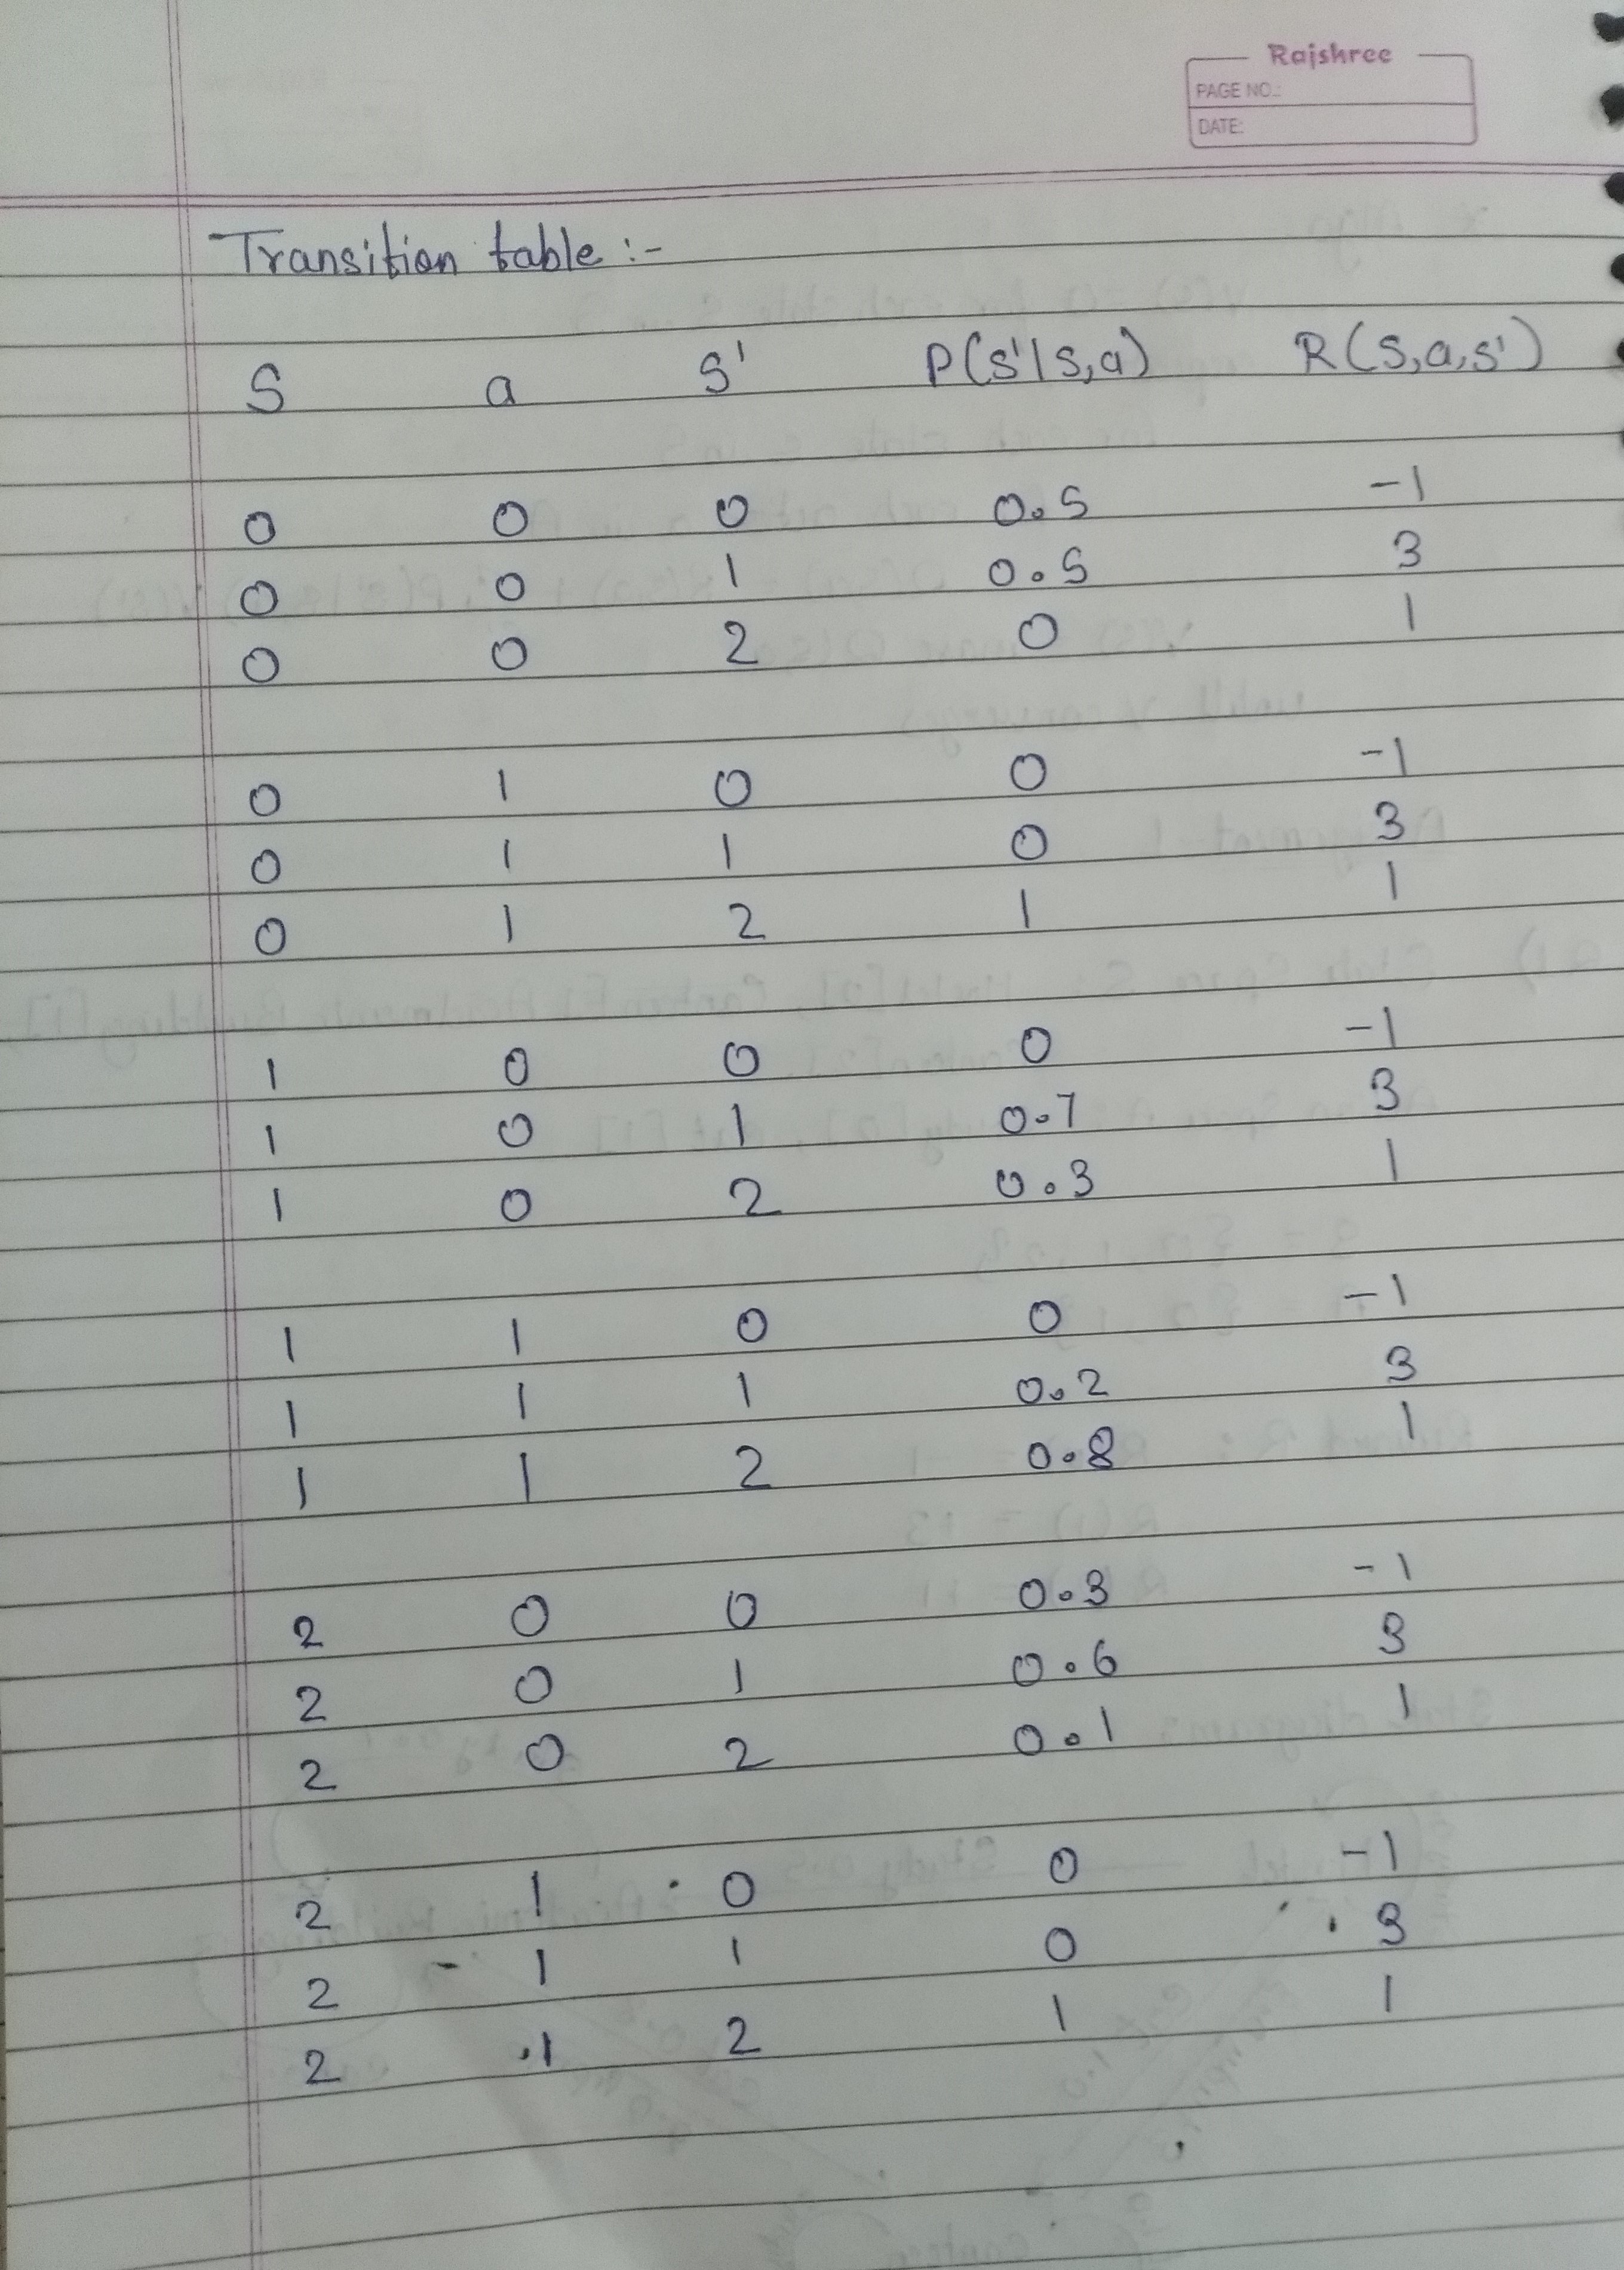 Rajshree
PAGE NO.:
DATE:
Transition table :-
S a S' P(s'|s,a) R(s,a,s')
0 0 0 0.5 -1
0 0 1 0.5 3
0 0 2 0 1
0 1 0 0 -1
0 1 1 0 3
0 1 2 1 1
1 0 0 0 -1
1 0 1 0.7 3
1 0 2 0.3 1
1 1 0 0 -1
1 1 1 0.2 3
1 1 2 0.8 1
2 0 0 0.3 -1
2 0 1 0.6 3
2 0 2 0.1 1
2 1 0 0 -1
2 1 1 0 3
2 1 2 1 1